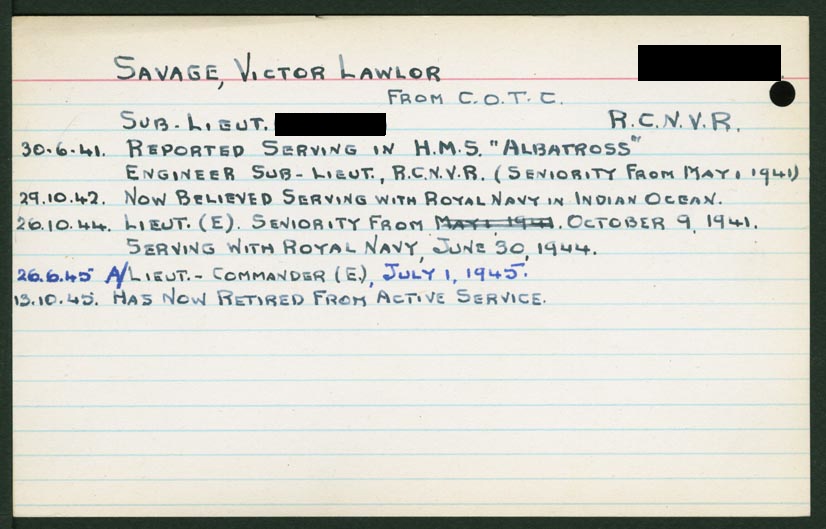 SAVAGE, VICTOR LAWLOR
FROM C.O.T.C.
SUB-LIEUT. R.C.N.V.R.
30.6.41. REPORTED SERVING IN H.M.S. "ALBATROSS"
ENGINEER SUB-LIEUT., R.C.N.V.R. (SENIORITY FROM MAY 1 1941)
29.10.42. NOW BELIEVED SERVING WITH ROYAL NAVY IN INDIAN OCEAN.
26.10.44. LIEUT. (E). SENIORITY FROM MAY 1, 1941. OCTOBER 9, 1941.
SERVING WITH ROYAL NAVY, JUNE 30, 1944.
26.6.45 A/LIEUT.-COMMANDER (E), JULY 1, 1945.
13.10.45. HAS NOW RETIRED FROM ACTIVE SERVICE.